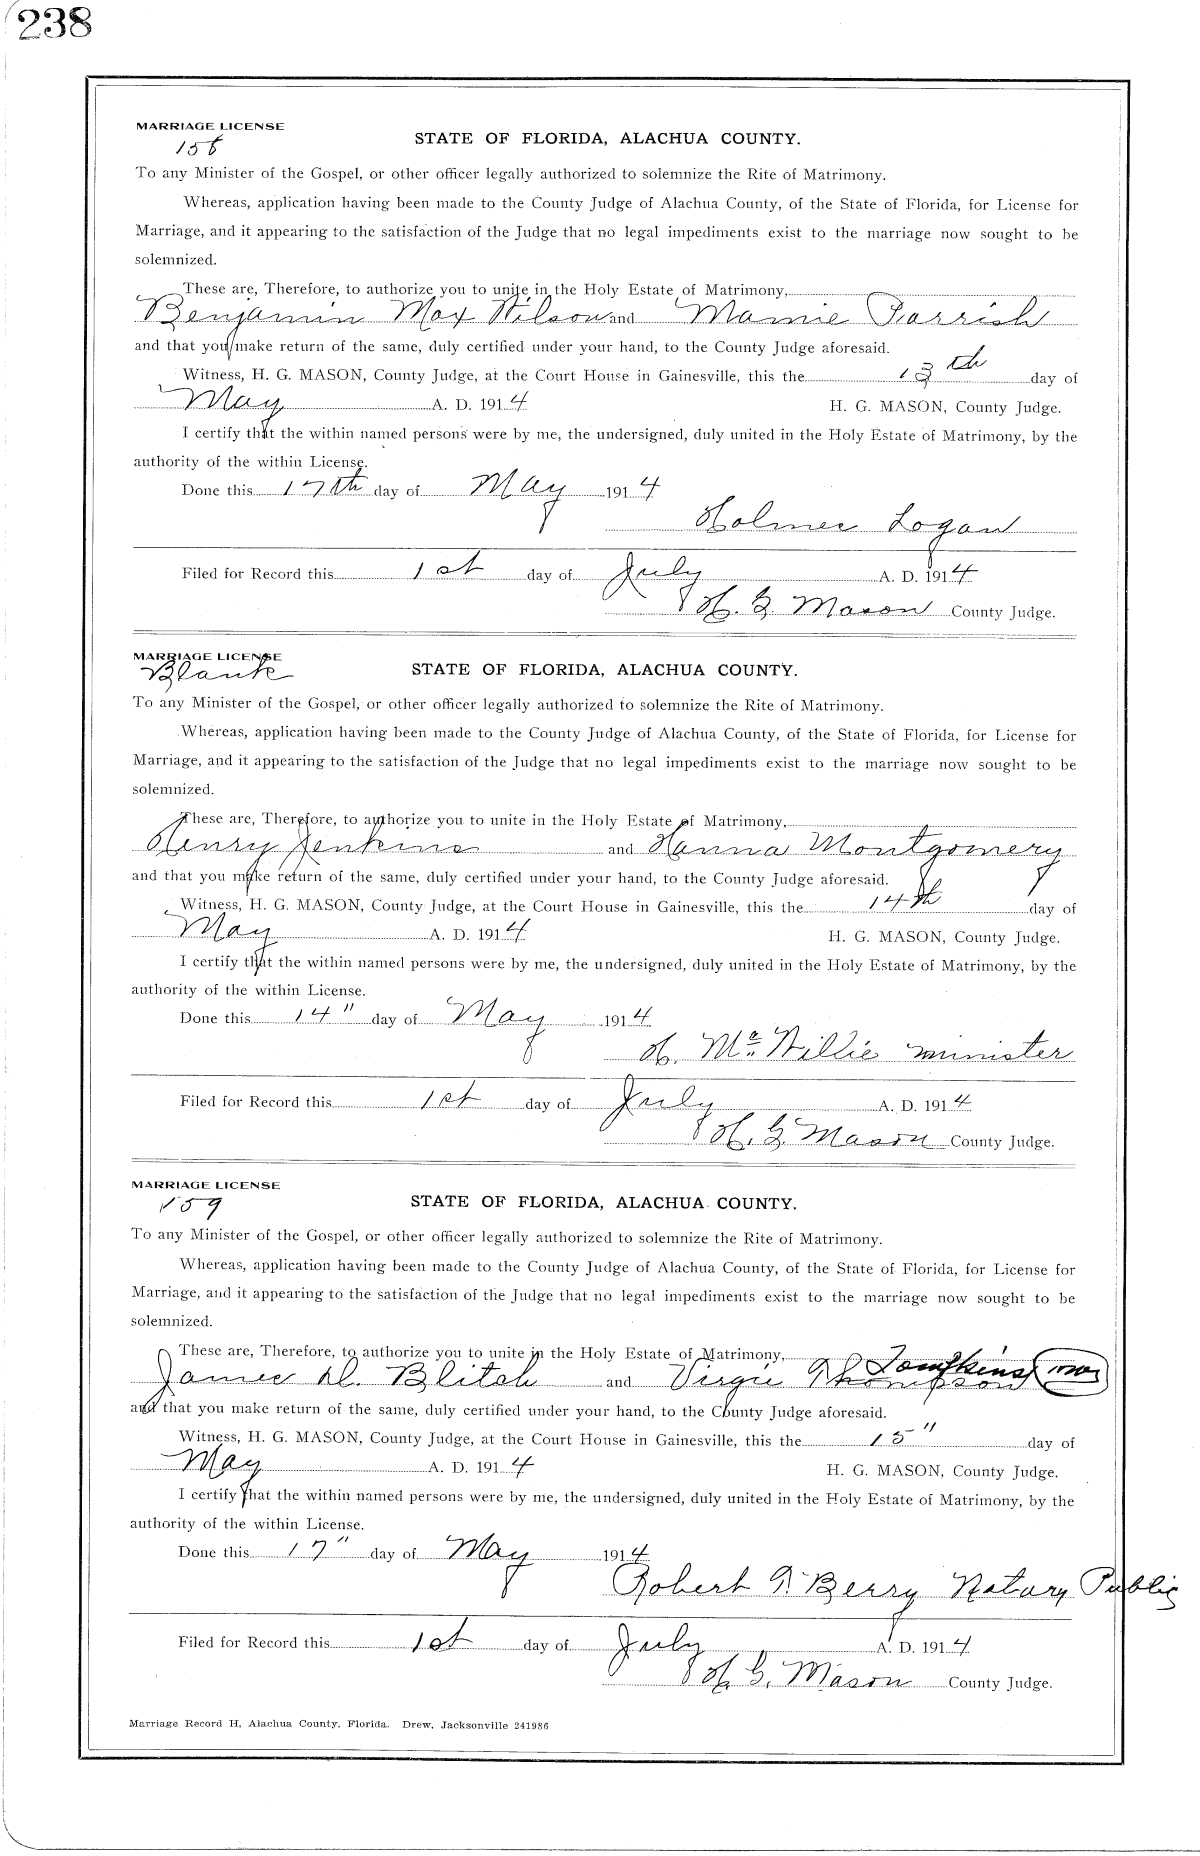 238
MARRIAGE LICENSE
STATE OF FLORIDA, ALACHUA COUNTY.
To any Minister of the Gospel, or other officer legally authorized to solemnize the Rite of Matrimony.
Whereas, application having been made to the County Judge of Alachua County, of the State of Florida, for License for
Marriage, and it appearing to the satisfaction of the Judge that no legal impediments exist to the marriage now sought to be
solemnized.
These are, Therefore, to authorize you to unite in the Holy Estate of Matrimony,
Benjamin Max Wilson and Mamie Parrish
and that you make return of the same, duly certified under your hand, to the County Judge aforesaid.
Witness, H. G. MASON, County Judge, at the Court House in Gainesville, this the 13th day of
May A. D. 1914 H. G. MASON, County Judge.
I certify that the within named persons were by me, the undersigned, duly united in the Holy Estate of Matrimony, by the
authority of the within License.
Done this 17th day of May 1914
Holmes Logan
Filed for Record this 1st day of July A. D. 1914
H. G. Mason County Judge.
MARRIAGE LICENSE
Blank
STATE OF FLORIDA, ALACHUA COUNTY.
To any Minister of the Gospel, or other officer legally authorized to solemnize the Rite of Matrimony.
Whereas, application having been made to the County Judge of Alachua County, of the State of Florida, for License for
Marriage, and it appearing to the satisfaction of the Judge that no legal impediments exist to the marriage now sought to be
solemnized.
These are, Therefore, to authorize you to unite in the Holy Estate of Matrimony,
Henry Jenkins and Hanna Montgomery
and that you make return of the same, duly certified under your hand, to the County Judge aforesaid.
Witness, H. G. MASON, County Judge, at the Court House in Gainesville, this the 14th day of
May A. D. 1914 H. G. MASON, County Judge.
I certify that the within named persons were by me, the undersigned, duly united in the Holy Estate of Matrimony, by the
authority of the within License.
Done this 14" day of May 1914
H. Willie minister
Filed for Record this 1st day of July A. D. 1914
H. G. Mason County Judge.
MARRIAGE LICENSE
159
STATE OF FLORIDA, ALACHUA COUNTY.
To any Minister of the Gospel, or other officer legally authorized to solemnize the Rite of Matrimony.
Whereas, application having been made to the County Judge of Alachua County, of the State of Florida, for License for
Marriage, and it appearing to the satisfaction of the Judge that no legal impediments exist to the marriage now sought to be
solemnized.
These are, Therefore, to authorize you to unite in the Holy Estate of Matrimony,
Tompkins
James D. Blitch and Virgie Thompson
and that you make return of the same, duly certified under your hand, to the County Judge aforesaid.
Witness, H. G. MASON, County Judge, at the Court House in Gainesville, this the 15" day of
May A. D. 1914 H. G. MASON, County Judge.
I certify that the within named persons were by me, the undersigned, duly united in the Holy Estate of Matrimony, by the
authority of the within License.
Done this 17" day of May 1914
Robert T. Berry Notary Public
Filed for Record this 1st day of July A. D. 1914
H. G. Mason County Judge.
Marriage Record H, Alachua County, Florida. Drew, Jacksonville 241986